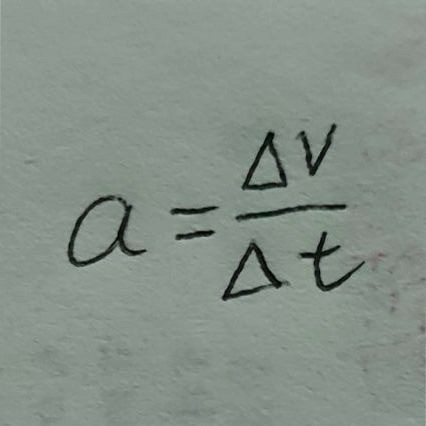 a = ΔV / Δt